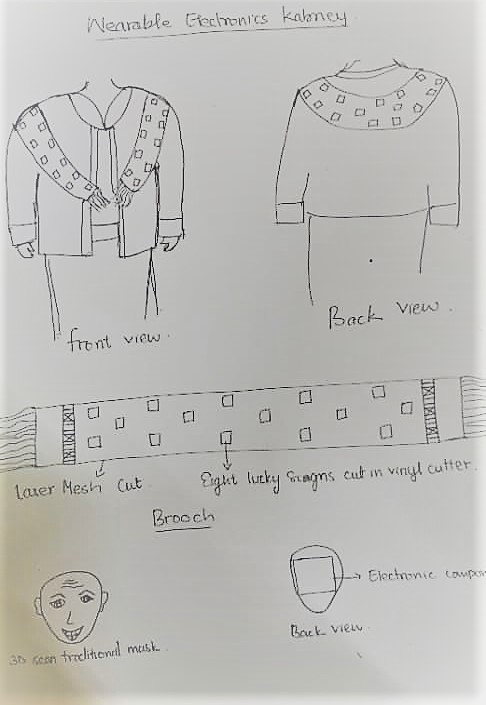 Wearable Electronics Kabney.
front view.
Back view.
Laser Mesh Cut.
Eight lucky signs cut in vinyl cutter.
Brooch
Electronic compon
Back view.
3D scan traditional mask.